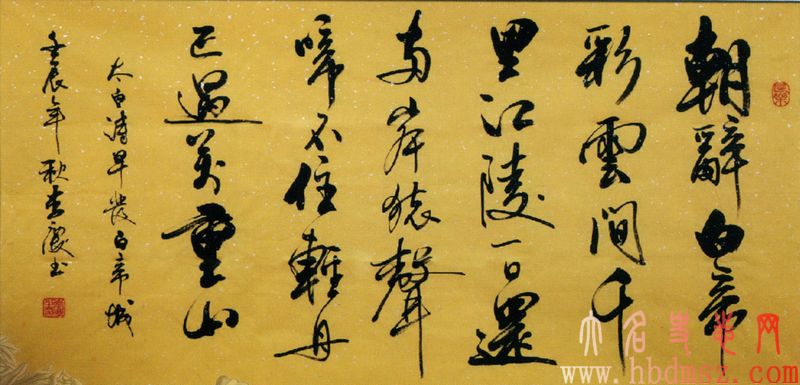 朝辭白帝
彩雲間千
里江陵一日還
兩岸猿聲
啼不住輕舟
已過萬重山
太白詩早發白帝城
壬辰年秋李慶书
大名网
www.hbdmsz.com